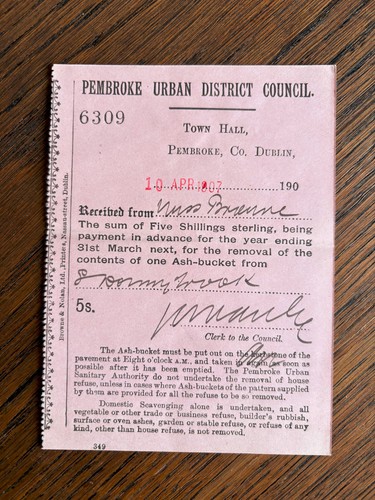 PEMBROKE URBAN DISTRICT COUNCIL.
6309
TOWN HALL,
PEMBROKE, CO. DUBLIN,
10 APR. 1907 190
Received from Miss Browne
The sum of Five Shillings sterling, being
payment in advance for the year ending
31st March next, for the removal of the
contents of one Ash-bucket from
8 Donnybrook
5s.
Clerk to the Council.
The Ash-bucket must be put out on the kerbstone of the
pavement at Eight o'clock A.M., and taken in again as soon as
possible after it has been emptied. The Pembroke Urban
Sanitary Authority do not undertake the removal of house
refuse, unless in cases where Ash-buckets of the pattern supplied
by them are provided for all the refuse to be so removed.
Domestic Scavenging alone is undertaken, and all
vegetable or other trade or business refuse, builder's rubbish,
surface or oven ashes, garden or stable refuse, or refuse of any
kind, other than house refuse, is not removed.
349
Browne & Nolan, Ltd., Printers, Nassau-street, Dublin.